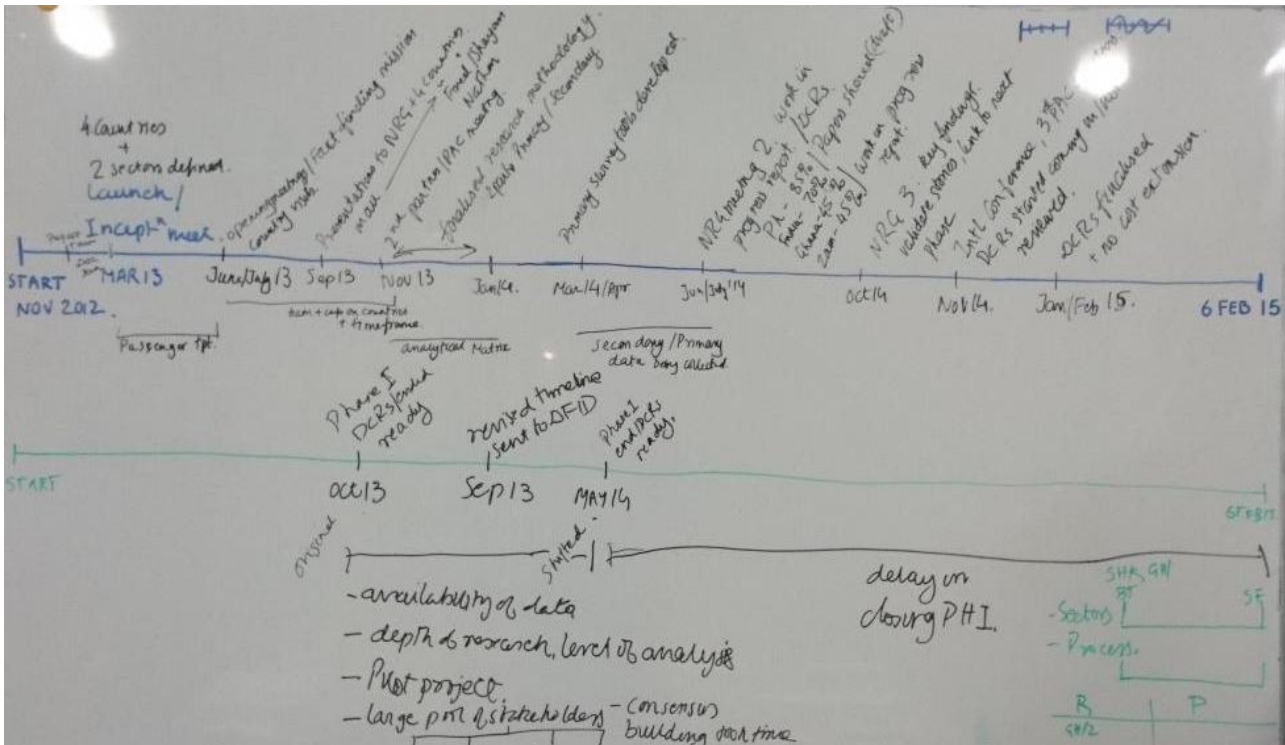 4 Countries
+
2 sectors defined.
Launch /
Incept<sup>n</sup> meet.
opening meetings / Fact-finding mission
Country visits.
Presentations to NRG + 4 countries
2nd partner / PAC meeting
finalised research methodology
Primary / Secondary
Primary survey tools developed.
NRG meeting 2, work in
progress report / DCRs.
India - 70%
Ghana - 45%
Zam - 45%
work in progress
report.
NRG 3. Key findings.
validate stories, link to next
phase
Intl Conference, 3rd PAC
DCRs started coming in /
reviewed.
DCRs finalised
+ no cost extension
START
NOV 2012.
MAR 13
June/July 13
Sep 13
Nov 13
Jan 14.
Mar 14/Apr
Jun/July '14
Oct 14
Nov 14.
Jan/Feb 15.
6 FEB 15
Passenger tpt.
+ timeframe
analytical Matrix
secondary / Primary
data being collected
Phase I
DCRs/ended
ready
revised timeline
sent to DFID
Phase I
end/DCRs
ready.
START
Oct 13
Sep 13
MAY 14
original
Shifted
- availability of data
- depth of research, level of analysis
- Pilot project
- large pool of stakeholders - consensus
building took time
delay in
closing PH I.
- Sectors
- Process.
R
P